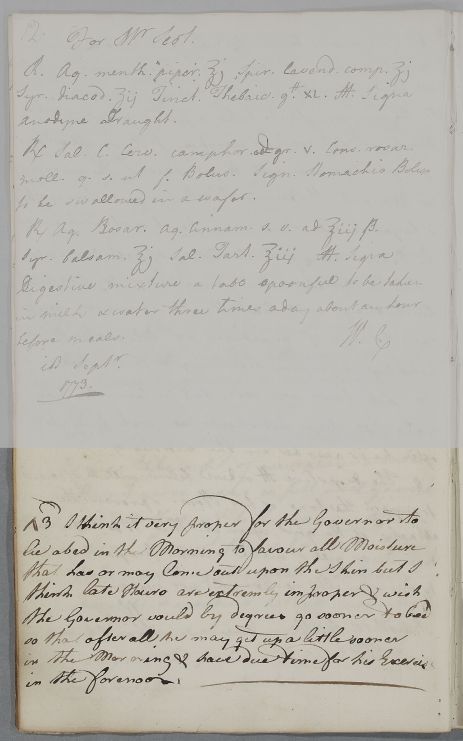 2. For Mr Scot.
R. Aq. menth. piper. ℥j Spir. Lavend. comp. ʒj
Syr. diacod. ʒij Tinct. Thebaic. gtt XL. ft. Signa
anodyne draught.
Rx Sal. C. Cerv. camphor. gr. v. Cons. rosar.
moll. q. s. ut f. Bolus. Sign. Stomachic Bolus
to be swallowed in a wafer.
Rx Aq. Rosar. Aq. Cinnam. s. v. ad ℥iij ß.
Syr. balsam. ℥j Sal. Tart. ʒiij ft. Signa
Digestive mixture a table spoonful to be taken
in milk & water three times a day about an hour
before meals. W. C
Septr.
1773.
3 I think it very proper for the Governor to
lie abed in the Morning to favour all Moisture
that has or may Come out upon the Skin but I
think late Hours are extremly improper & wish
the Governor would by degrees go sooner to bed
so that after all he may get up a little sooner
in the Morning & have due time for his Exercise
in the forenoon.